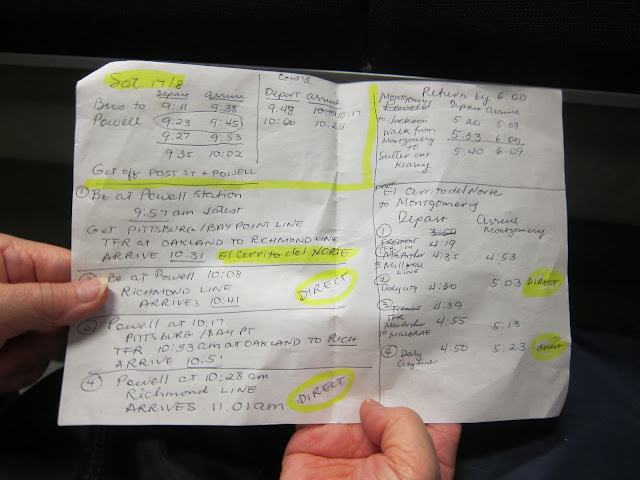 Sat. 17/8
Depart Arrive
Bus to 9:11 9:38
Powell 9:23 9:45
9:27 9:53
9:35 10:02
Get off POST ST + POWELL
Cont'd
Depart Arrive
9:48 10:17
10:00 10:25
① Be at Powell Station
9:57 am latest
Get PITTSBURG/BAY POINT LINE
TFR at OAKLAND to RICHMOND LINE
ARRIVE 10:31 El Cerrito del NORTE
Be at Powell 10:08
RICHMOND LINE
ARRIVES 10:41
DIRECT
Powell at 10:17
PITTSBURG/BAY PT
TFR 10:33 am at OAKLAND to RICH
ARRIVE 10:51
④ Powell at 10:28 am
Richmond LINE
ARRIVES 11.01am
DIRECT
Return by 6:00
Montgomery Depart Arrive
to Jackson 5.20
Walk from 5:33 6:00
Montgomery 5:40 6:09
to
Sutter
Kearny
El Cerrito del Norte
to Montgomery
Depart Arrive
Montgomery
①
Fremont 4:19
TFR
MacArthur 4:35 4:53
to Millbrae
LINE
②
Daly City 4:30 5:03 DIRECT
③ Fremont 4:39
TFR
MacArthur 4:55 5:13
to MILLBRAE
④ Daly 4:50 5:23 direct
City line